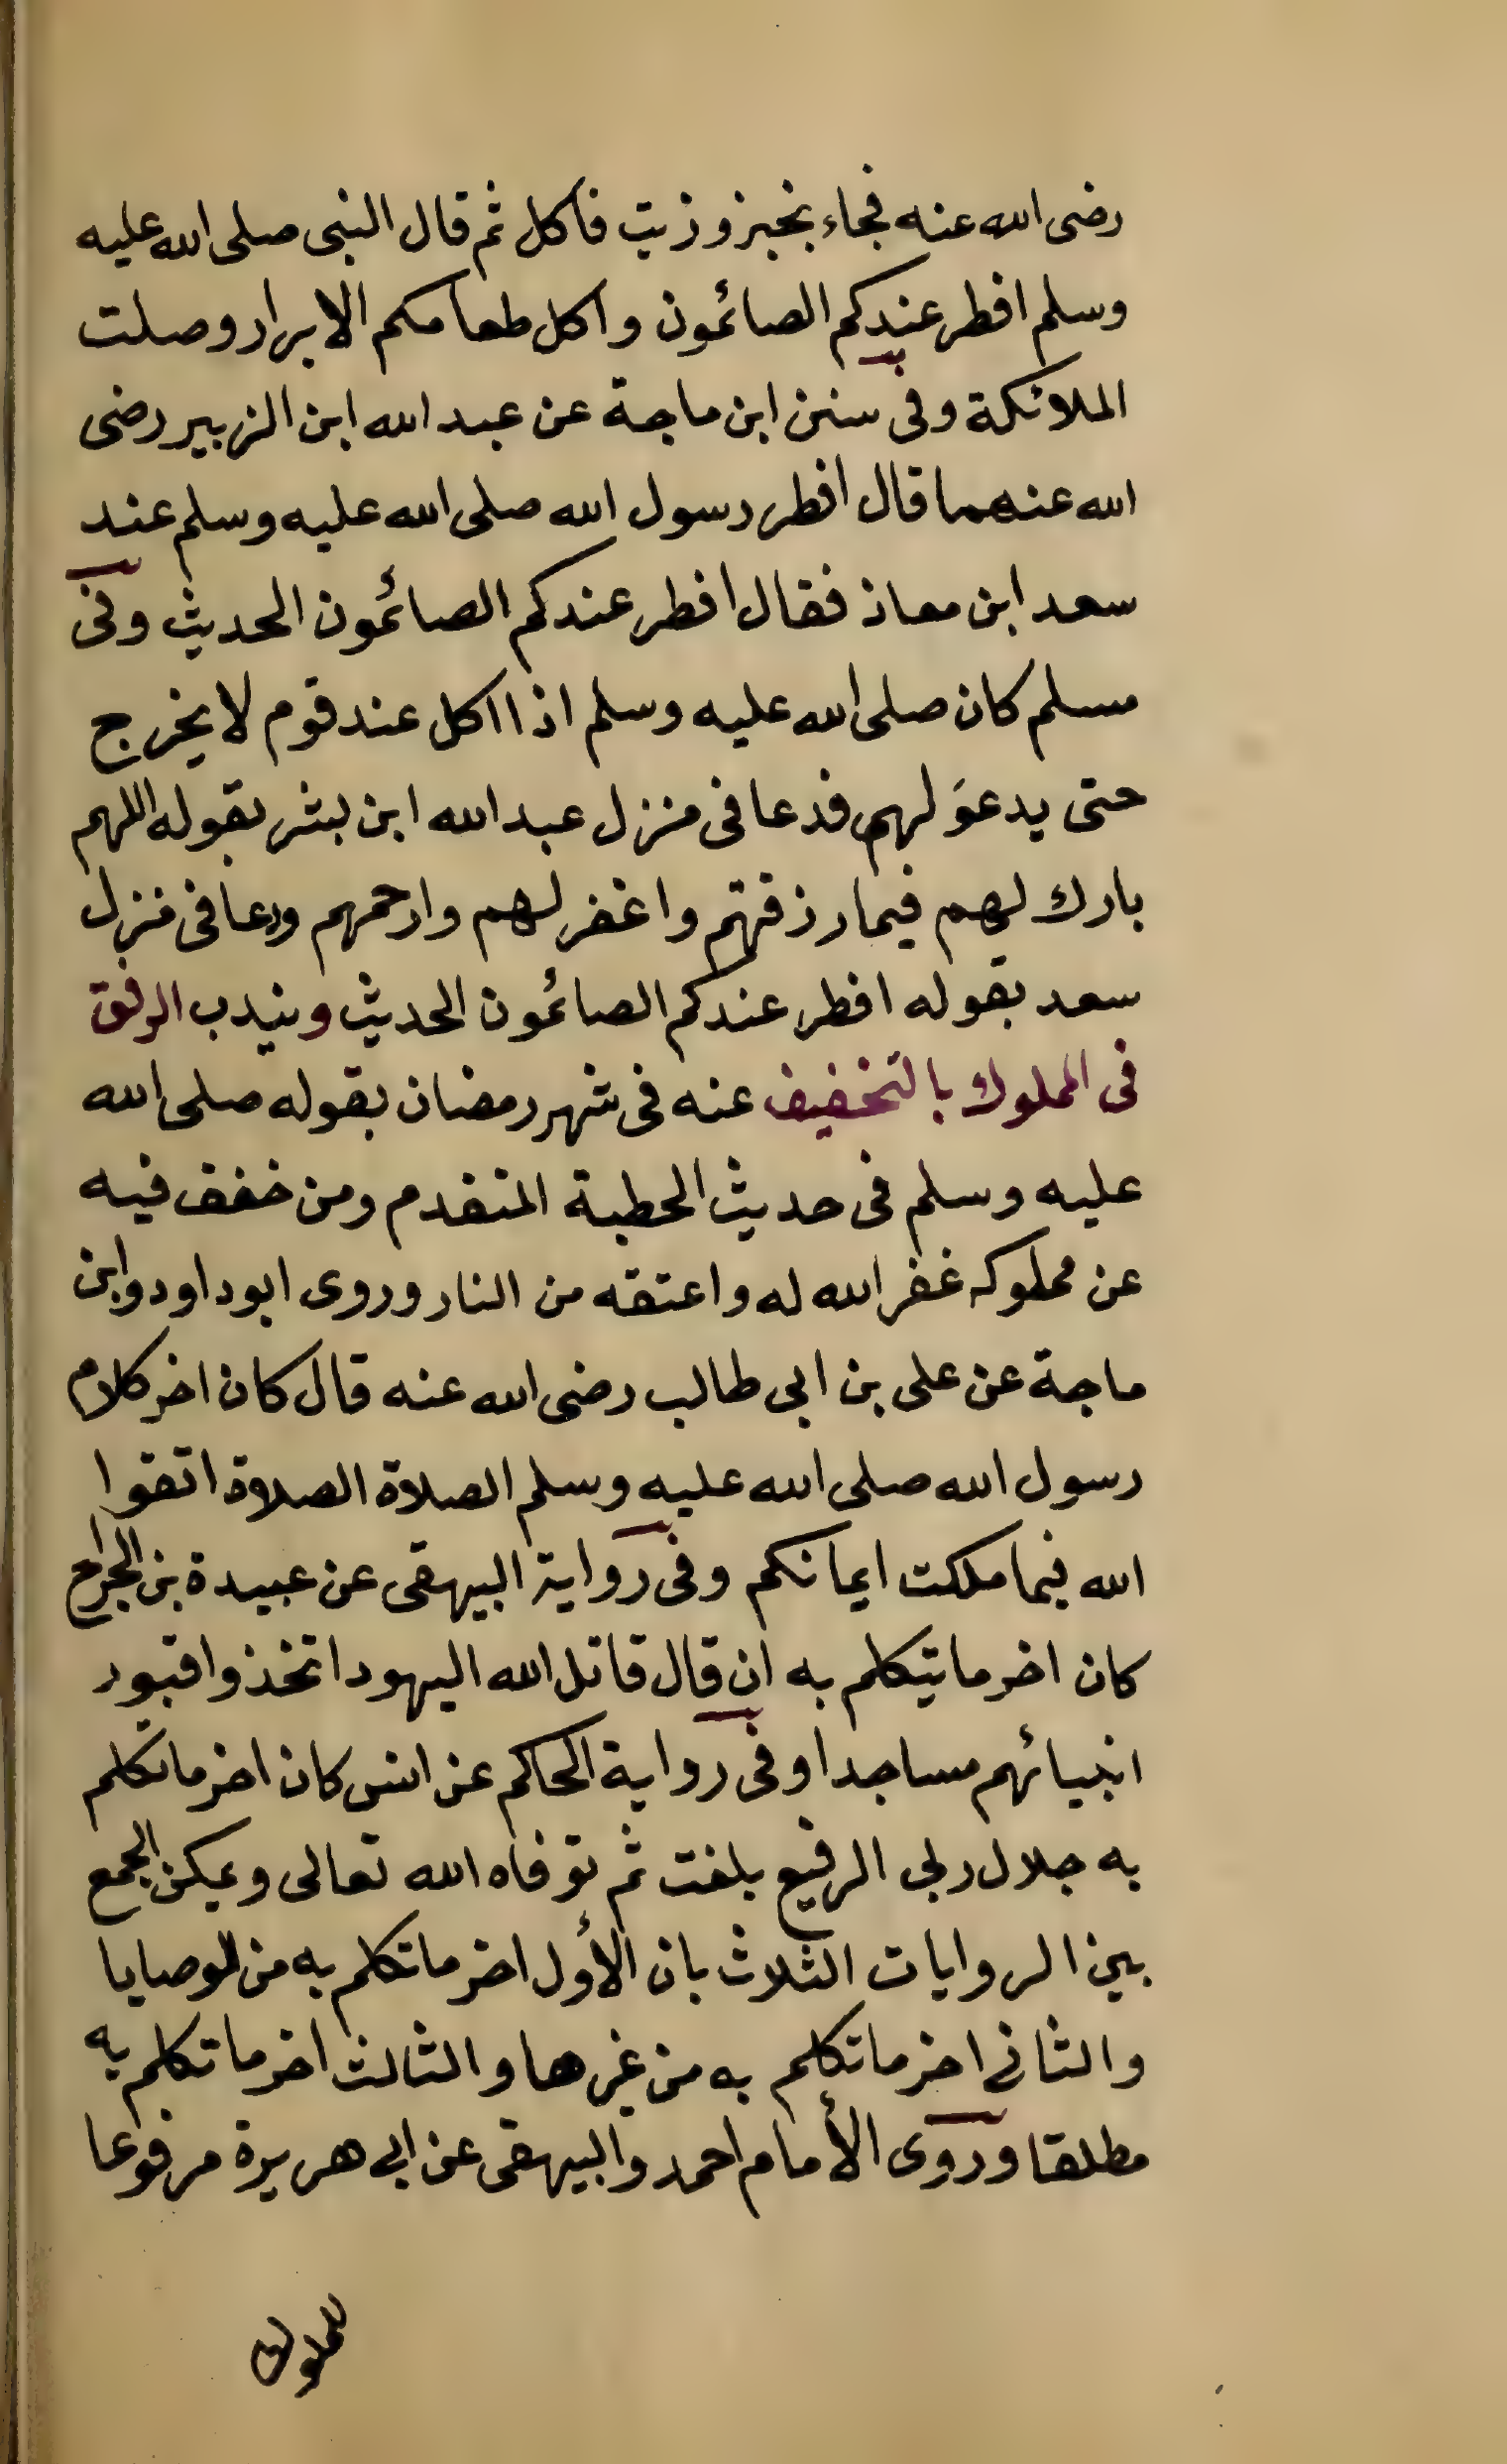 رضى الله عنه فجاء بخبز وزيت فأكل ثم قال النبى صلى الله عليه
وسلم افطر عندكم الصائمون واكل طعامكم الابرار وصلت
الملائكة وفى سنن ابن ماجة عن عبد الله ابن الزبير رضى
الله عنهما قال افطر رسول الله صلى الله عليه وسلم عند
سعد ابن معاذ فقال افطر عندكم الصائمون الحديث وفى
مسلم كان صلى الله عليه وسلم اذا اكل عند قوم لا يخرج
حتى يدعوَ لهم فدعا فى منزل عبد الله ابن بشر بقوله اللهم
بارك لهم فيما رزقتهم واغفر لهم وارحمهم ودعا فى منزل
سعد بقوله افطر عندكم الصائمون الحديث ويندب الرفق
فى المملوك بالتخفيف عنه فى شهر رمضان بقوله صلى الله
عليه وسلم فى حديث الخطبة المتقدم ومن خفف فيه
عن مملوكه غفر الله له واعتقه من النار وروى ابوداود وابن
ماجة عن على بن ابى طالب رضى الله عنه قال كان اخر كلام
رسول الله صلى الله عليه وسلم الصلاة الصلاة اتقوا
الله فيما ملكت ايمانكم وفى رواية البيهقى عن عبيدة بن الجراح
كان اخر ما يتكلم به ان قال قاتل الله اليهود اتخذوا قبور
انبيائهم مساجدا وفى رواية الحاكم عن انس كان اخر ما تكلم
به جلال ربى الرفيع بلغت ثم توفاه الله تعالى ويمكن الجمع
بين الروايات الثلاث بان الأول اخر ما تكلم به من الوصايا
والثانى اخر ما تكلم به من غيرها والثالث اخر ما تكلم به
مطلقا وروى الأمام احمد والبيهقى عن ابى هريرة مرفوعا
للملوك